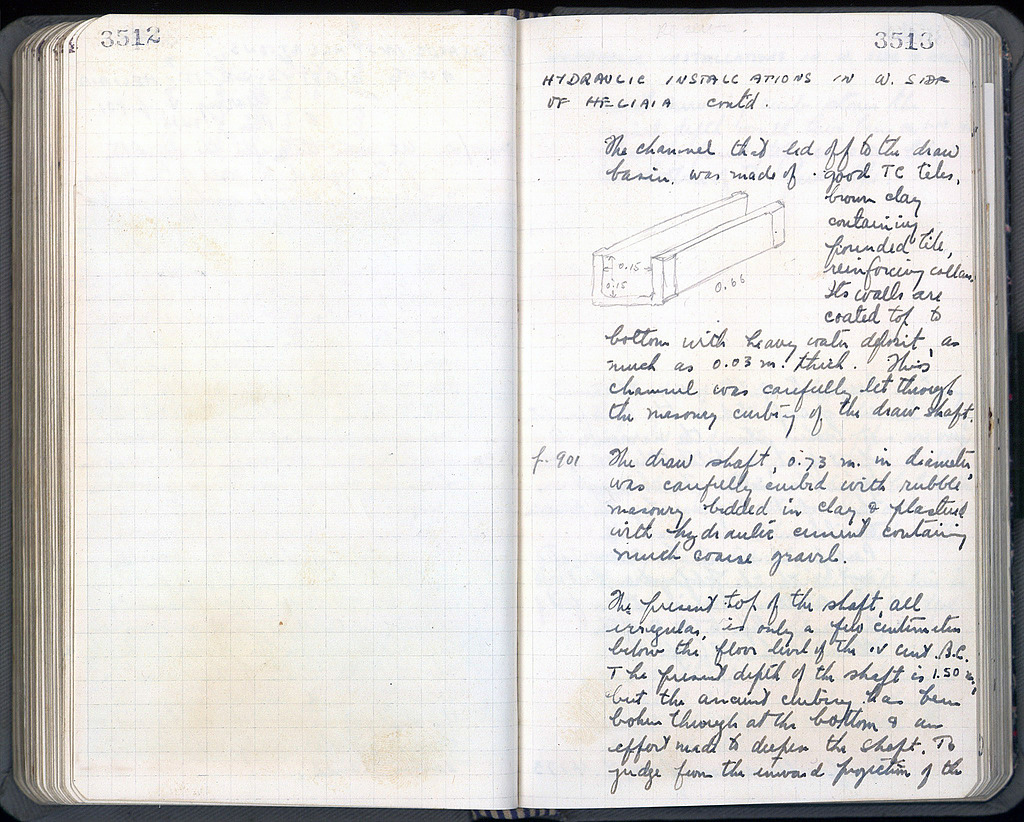 3512
3513
HYDRAULIC INSTALLATIONS IN W. SIDE
OF HELIAIA contd.
The channel that led off to the draw
basin, was made of good TC tiles,
brown clay
containing
pounded tile,
reinforcing collars.
Its walls are
coated top to
0.15
0.15
0.66
bottom with heavy water deposit, as
much as 0.03 m. thick. This
channel was carefully let through
the masonry curbing of the draw shaft.
f. 901 The draw shaft, 0.73 m. in diameter,
was carefully curbed with rubble
masonry bedded in clay & plastered
with hydraulic cement containing
much coarse gravel.
The present top of the shaft, all
irregular, is only a few centimeters
below the floor level of the IV cent. B.C.
The present depth of the shaft is 1.50 m,
but the ancient curbing has been
broken through at the bottom & an
effort made to deepen the shaft. To
judge from the inward projection of the